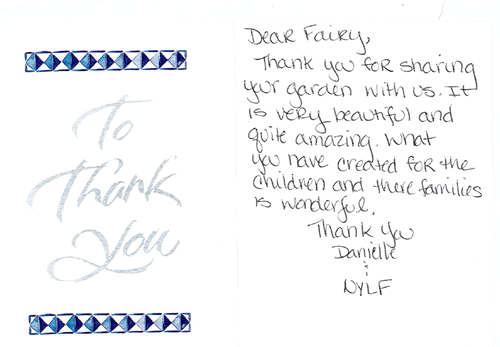 To
Thank
You
Dear Fairy,
Thank you for sharing
your garden with us. It
is very beautiful and
quite amazing. What
you have created for the
children and there families
is wonderful.
Thank You
Danielle
&
NYLF